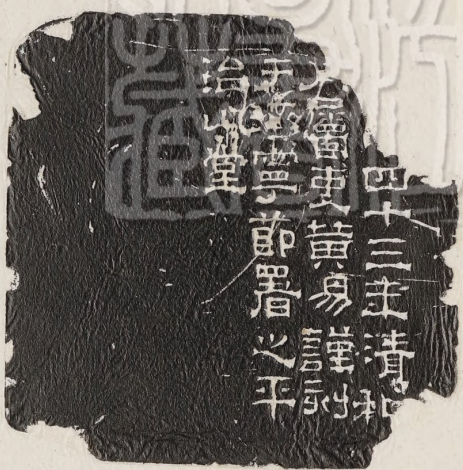 四十三年清和
屬吏黄易謹
于濟寧節署之平
治山堂